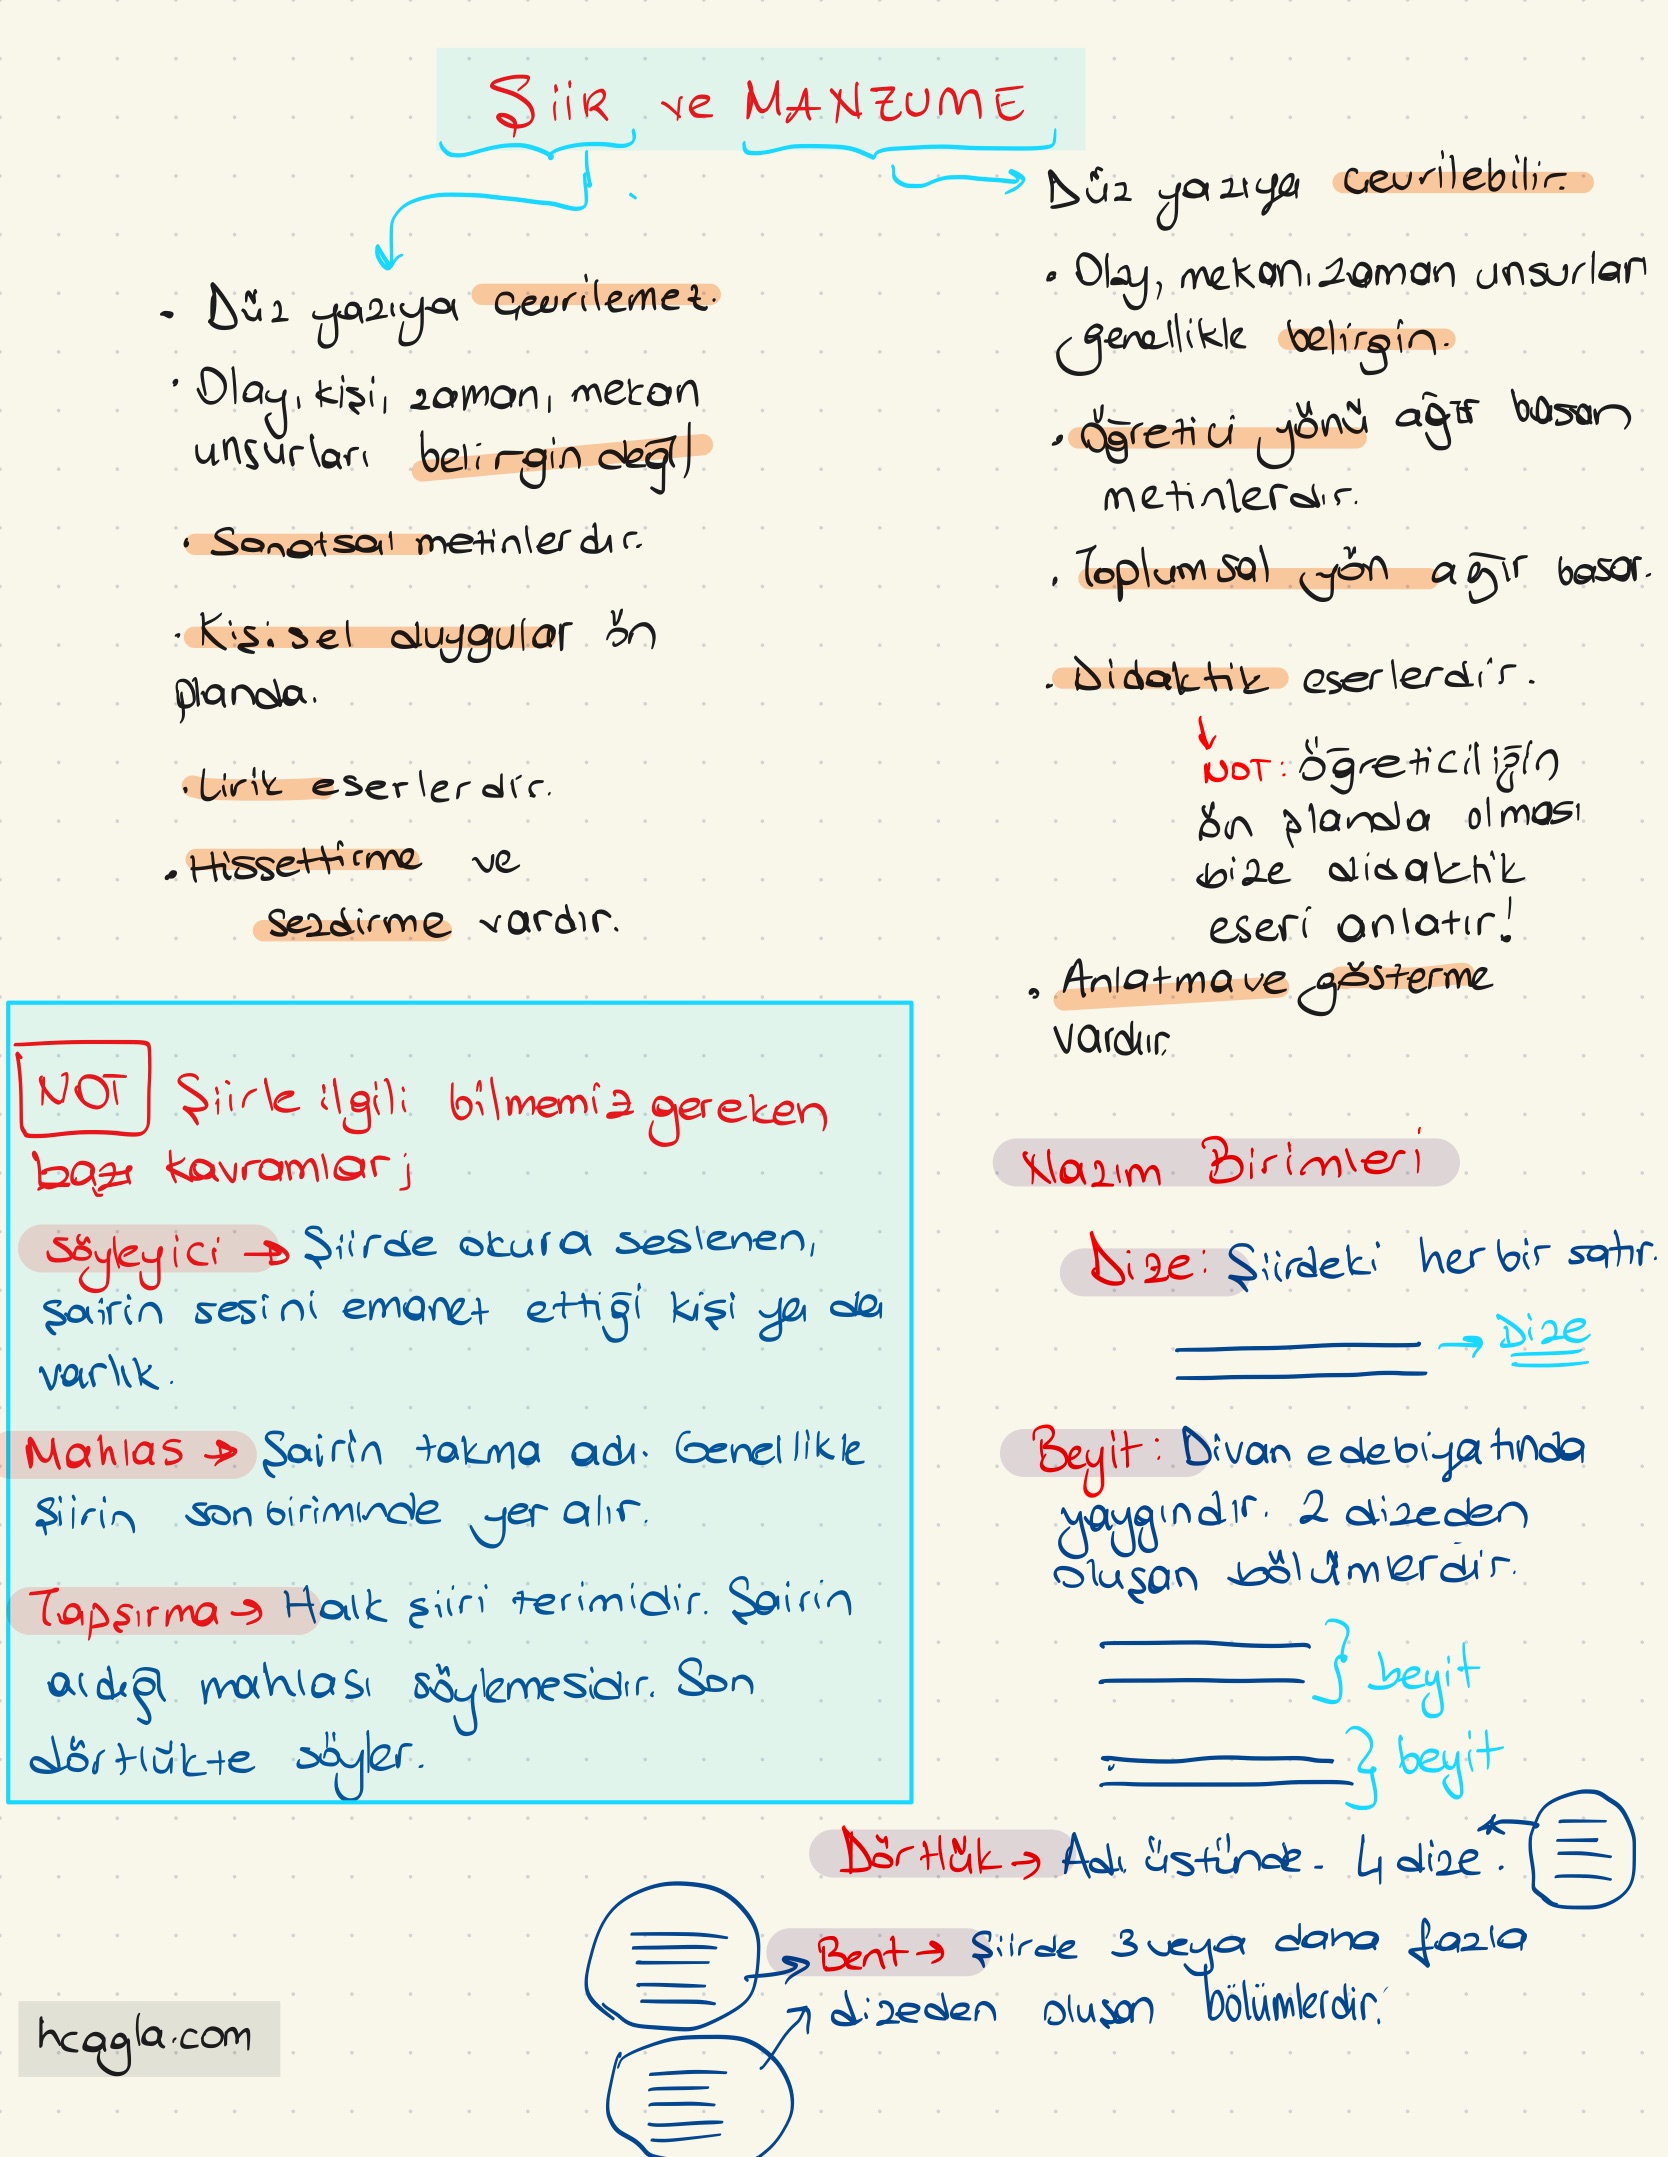 Şiir ve MANZUME
• Düz yazıya çevrilemez.
• Olay, kişi, zaman, mekan
unsurları belirgin değil
• Sanatsal metinlerdir.
• Kişisel duygular ön
planda.
• Lirik eserlerdir.
• Hissettirme ve
sezdirme vardır.
Düz yazıya çevrilebilir.
• Olay, mekan, zaman unsurları
genellikle belirgin.
• Öğretici yönü ağır basan
metinlerdir.
• Toplumsal yön ağır basar.
• Didaktik eserlerdir.
NOT: Öğreticiliğin
ön planda olması
bize didaktik
eseri anlatır!
• Anlatma ve gösterme
vardır.
NOT Şiirle ilgili bilmemiz gereken
bazı kavramlar;
Söyleyici → Şiirde okura seslenen,
şairin sesini emanet ettiği kişi ya da
varlık.
Mahlas → Şairin takma adı. Genellikle
şiirin son biriminde yer alır.
Tapşırma → Halk şiiri terimidir. Şairin
aldığı mahlası söylemesidir. Son
dörtlükte söyler.
Nazım Birimleri
Dize: Şiirdeki her bir satır.
→ Dize
Beyit: Divan edebiyatında
yaygındır. 2 dizeden
oluşan bölümlerdir.
} beyit
} beyit
Dörtlük → Adı üstünde. 4 dize.
Bent → Şiirde 3 veya daha fazla
dizeden oluşan bölümlerdir.
hcagla.com